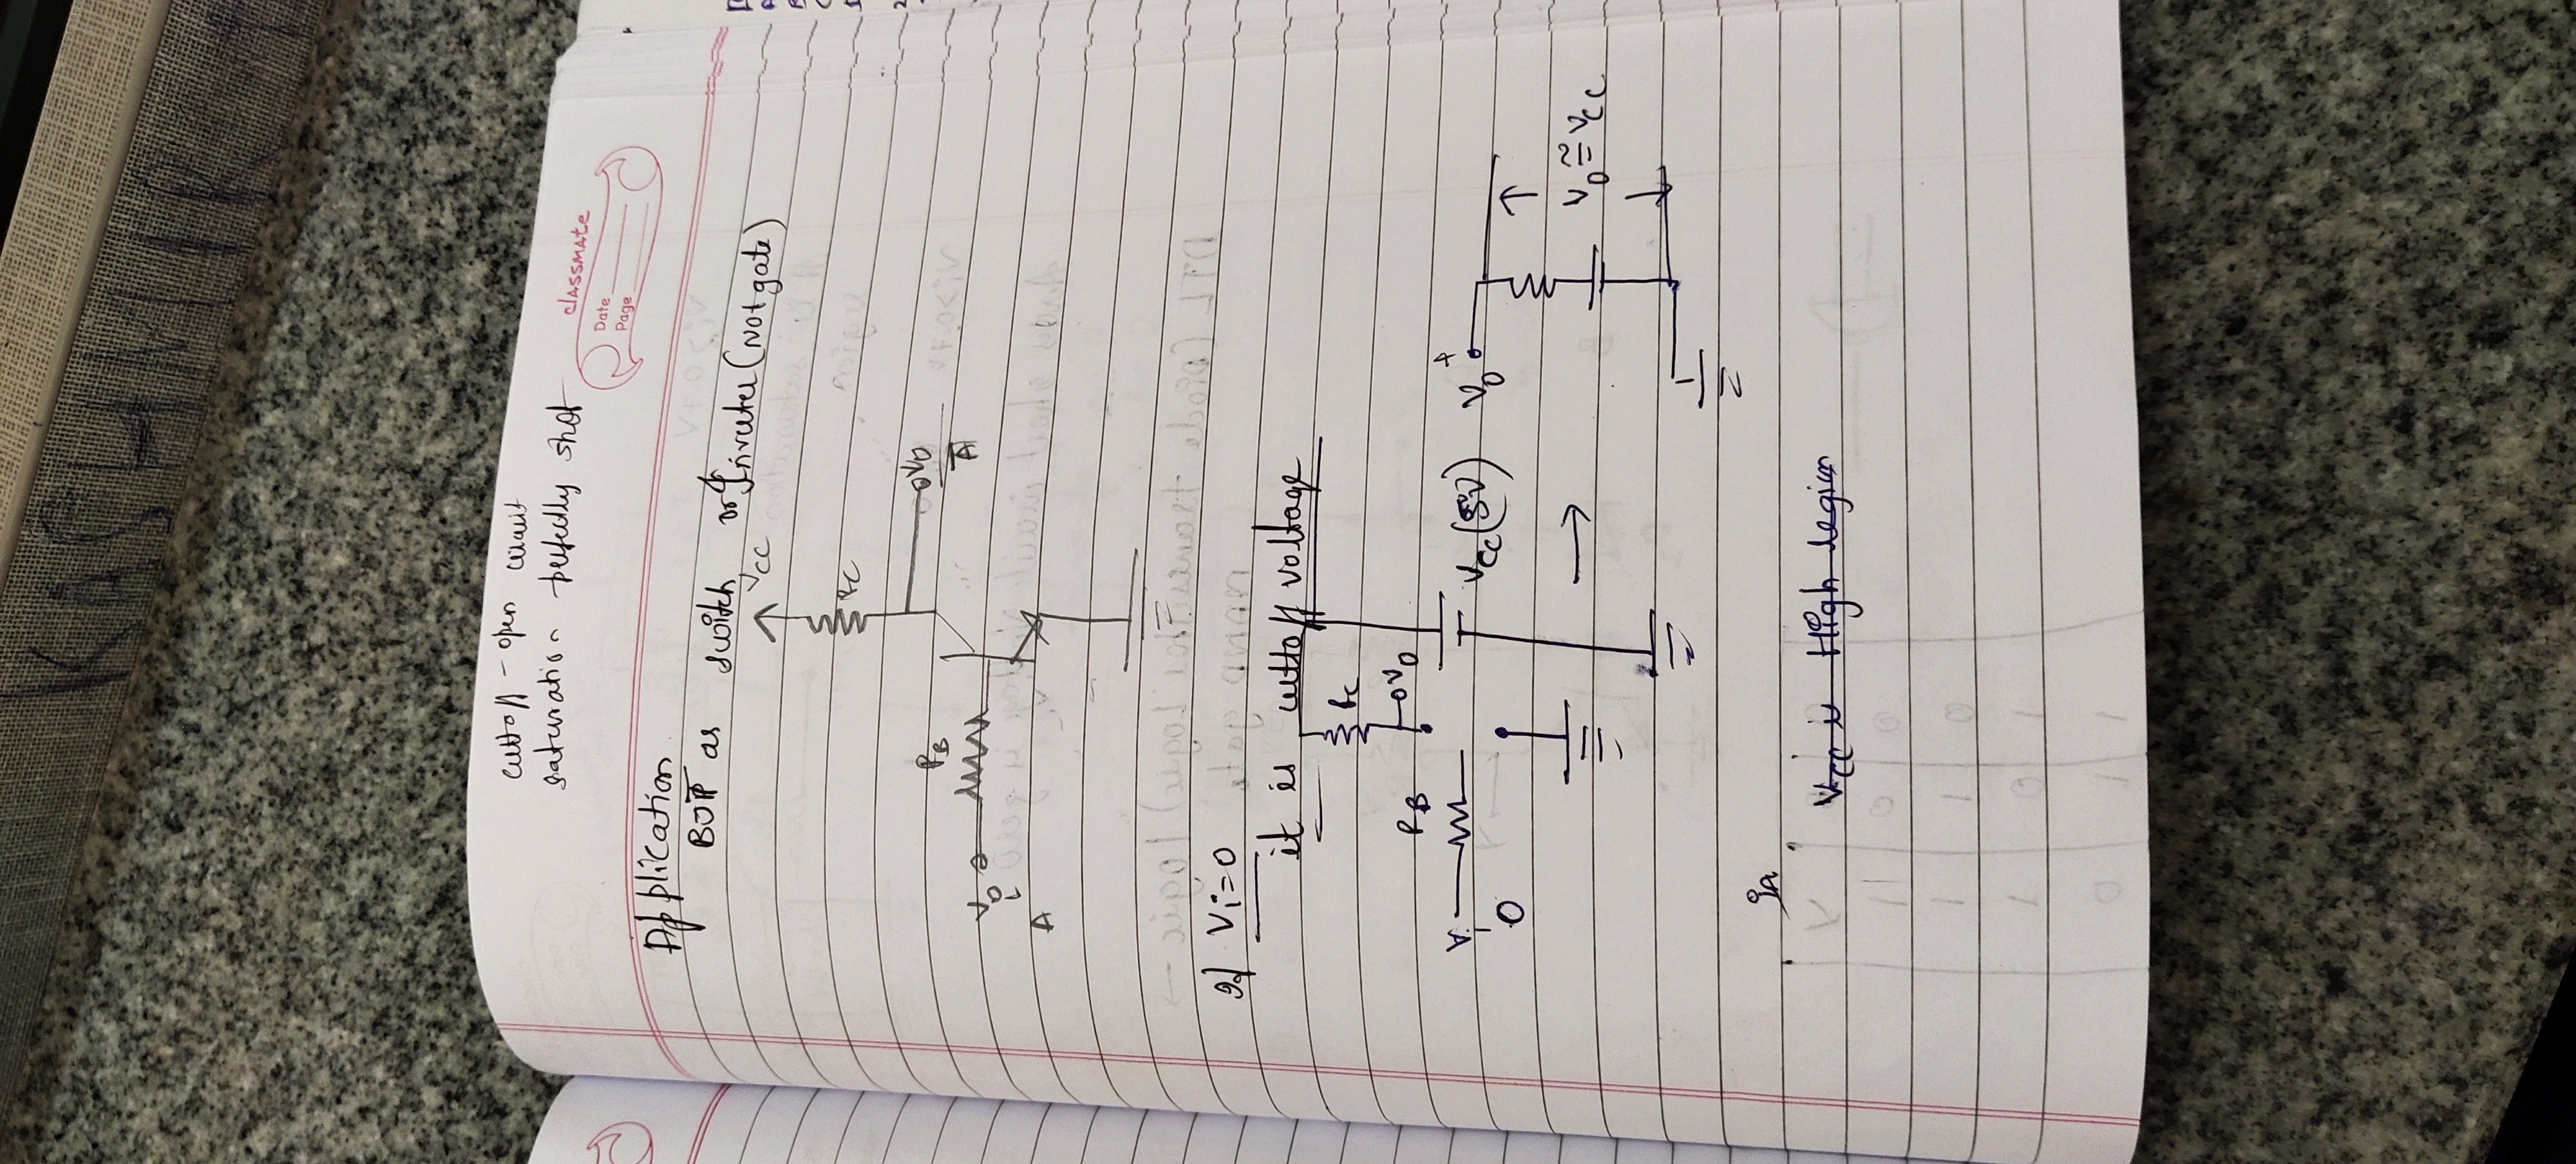 KASHMIR
cuttoff - open circuit
saturation perfectly shot
classmate
Date
Page
Application
BJT as switch or Inverter (Not gate)
VCC
RC
RB
VO
A
A
If Vi=0
it is cuttoff voltage
RC
VO
RB
Vi
0
VCC (5V)
VO
+
VO ≅ VCC
VCC is High region